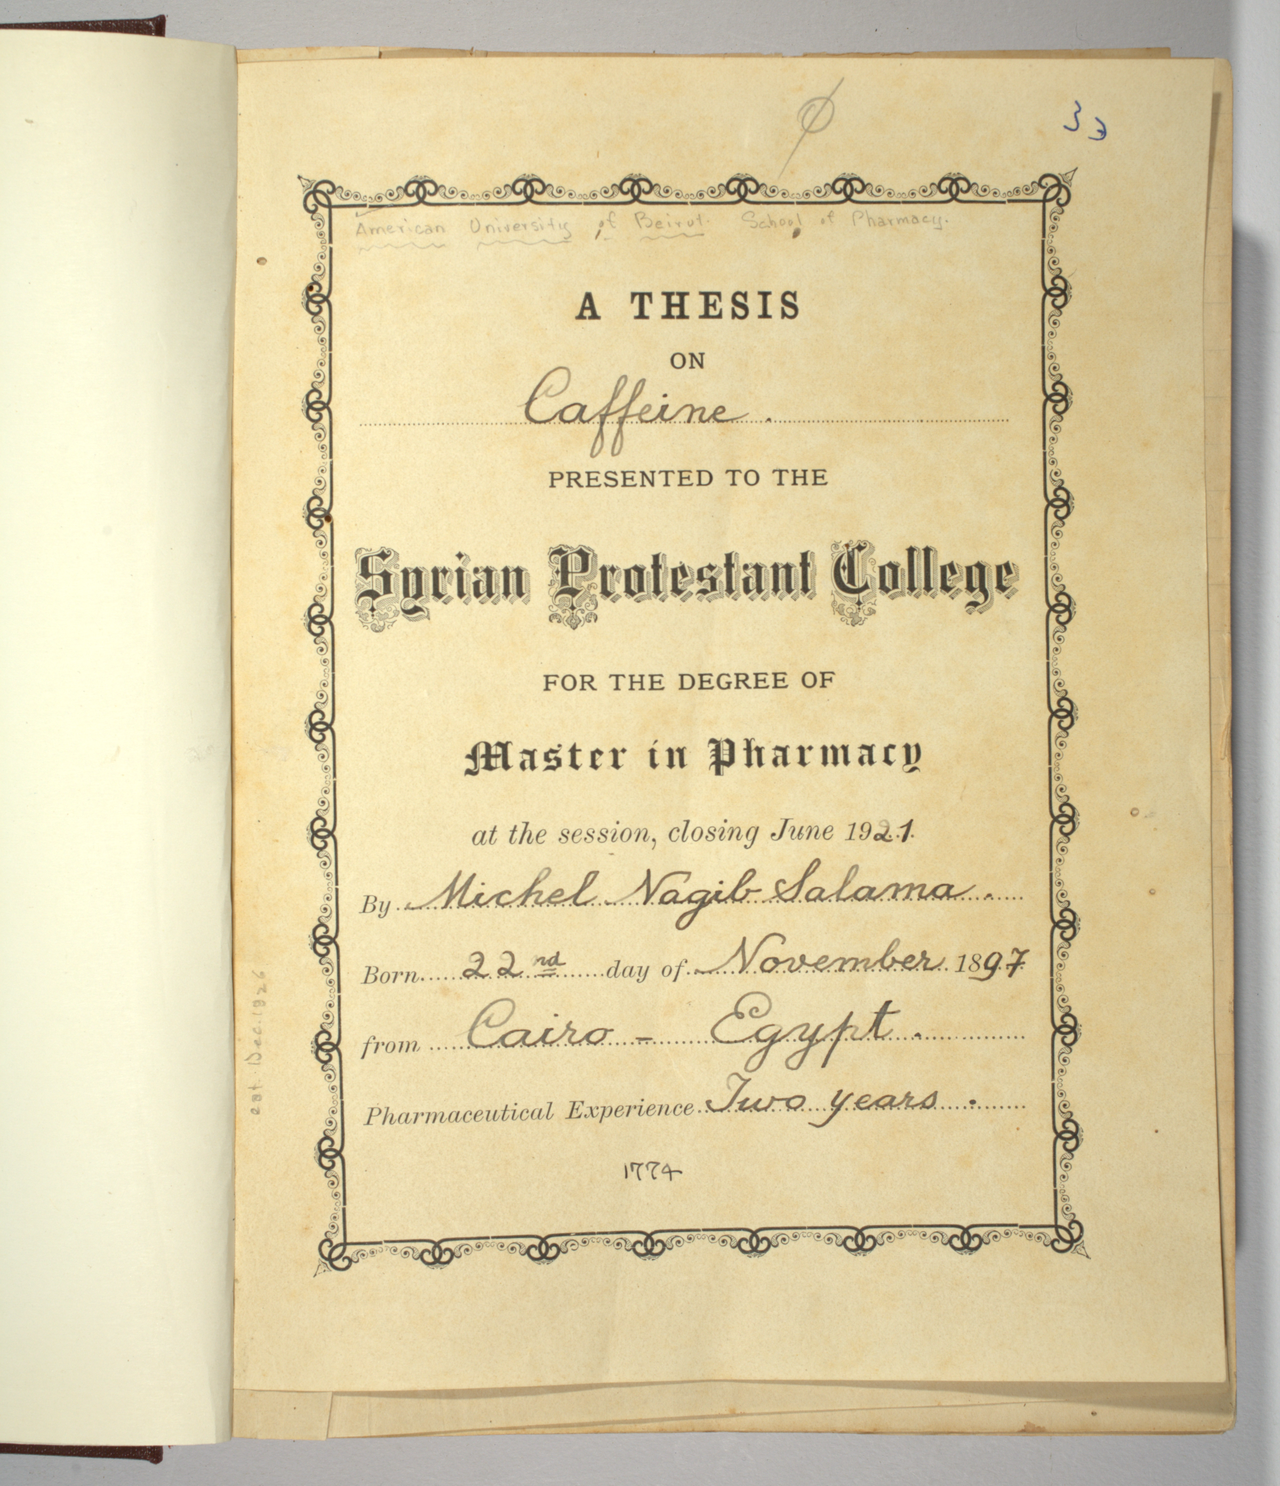 33
American University of Beirut. School of Pharmacy.
A THESIS
ON
Caffeine.
PRESENTED TO THE
Syrian Protestant College
FOR THE DEGREE OF
Master in Pharmacy
at the session, closing June 1921.
By Michel Nagib Salama.
Born 22nd day of November 1897
from Cairo - Egypt.
Pharmaceutical Experience Two years.
1774
cat. Dec. 1926